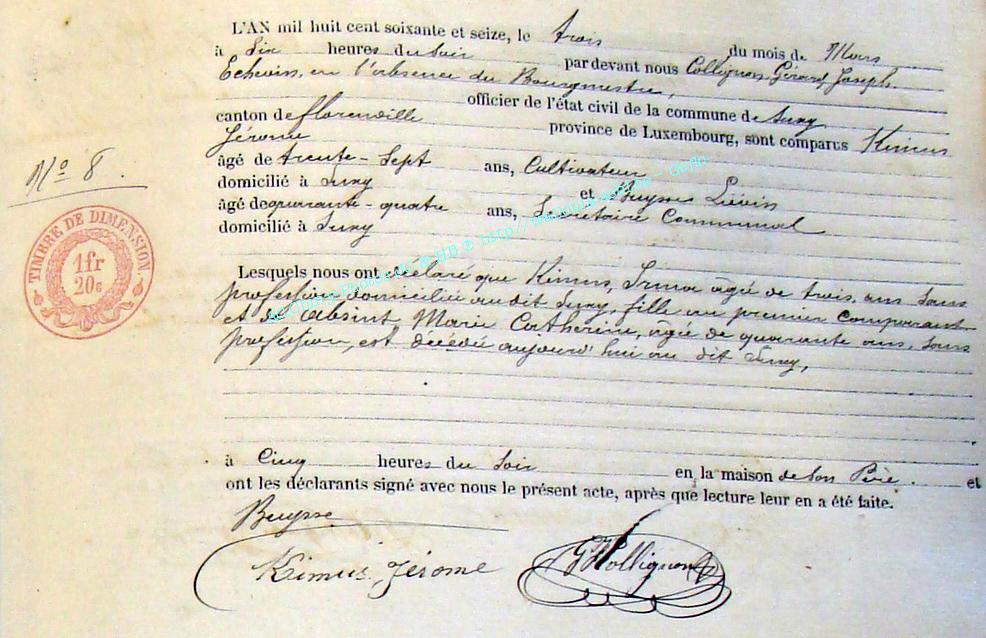 L'AN mil huit cent soixante et seize, le trois du mois de Mars
à Six heures du Soir par devant nous Collignon Gérard Joseph
Echevin, en l'absence du Bourgmestre,
officier de l'état civil de la commune de Suxy
canton de florenville province de Luxembourg, sont comparus Kimus
Jérome
âgé de trente-Sept ans, Cultivateur
domicilié à Suxy et Buysse Liévin
âgé de quarante-quatre ans, Secrétaire Communal
domicilié à Suxy
Nº 8.
TIMBRE DE DIMENSION
1fr
20c
Lesquels nous ont déclaré que Kimus, Irma agée de trois ans Sans
profession domiciliée audit Suxy, fille au premier comparant
et de Absint Marie Catherine, agée de quarante ans, Sans
profession, est décédée aujourd'hui au dit Suxy,
à Cinq heures du Soir en la maison de Son Père. et
ont les déclarants signé avec nous le présent acte, après que lecture leur en a été faite.
Buysse
Kimus Jérome
G Collignon